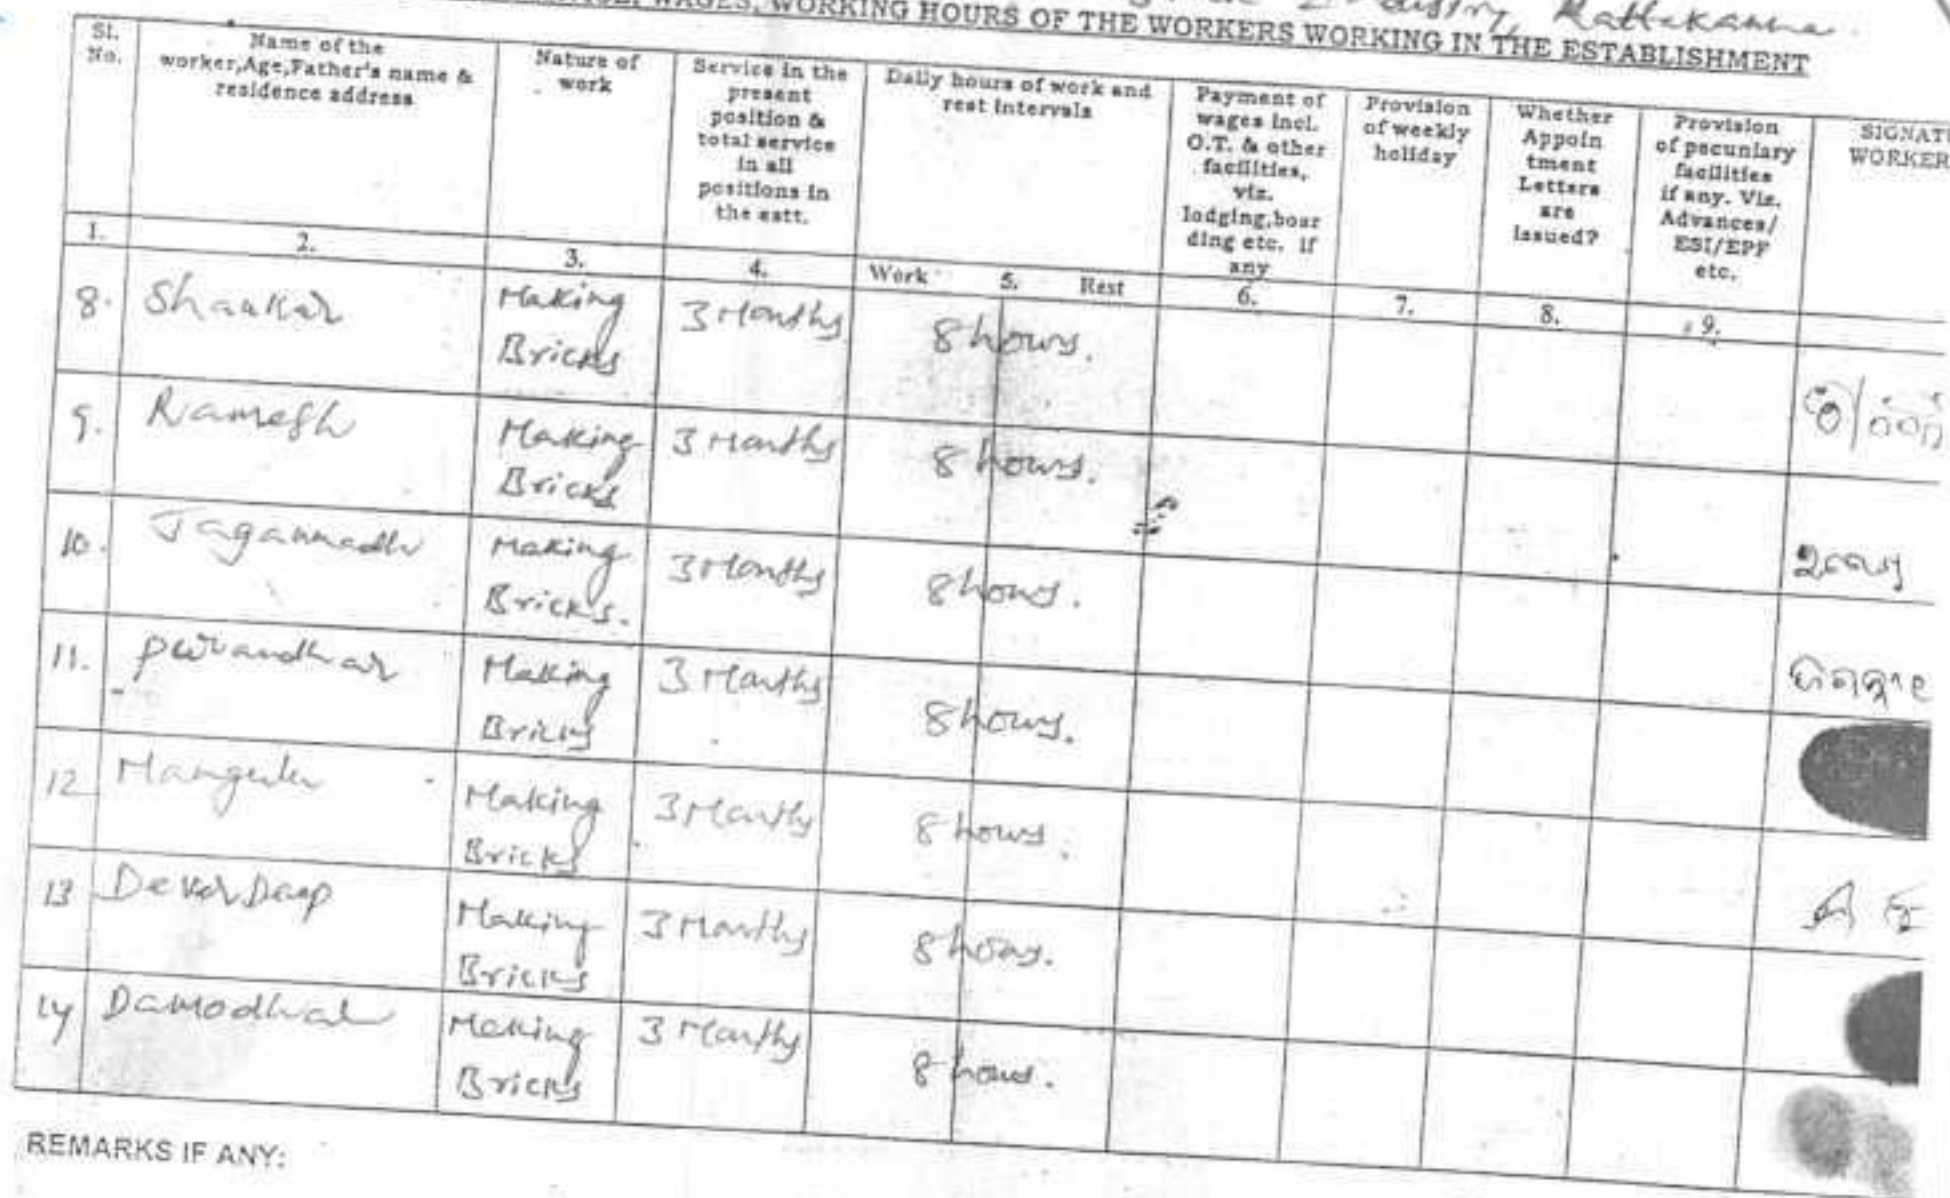 WAGES, WORKING HOURS OF THE WORKERS WORKING IN THE ESTABLISHMENT
Sl. No.
Name of the worker,Age,Father's name & residence address
Nature of work
Service in the present position & total service in all positions in the estt.
Daily hours of work and rest intervals
Payment of wages incl. O.T. & other facilities, viz. lodging,boar ding etc. if any
Provision of weekly holiday
Whether Appoin tment Letters are issued?
Provision of pecuniary facilities if any. Viz. Advances/ ESI/EPF etc.
SIGNATU WORKER
1. 2. 3. 4. Work 5. Rest 6. 7. 8. 9.
8. Shankar Making Bricks 3 Months 8 hours.
9. Ramesh Making Bricks 3 Months 8 hours.
10. Jagannadh Making Bricks. 3 Months 8 hours.
11. Purandhar Making Bricks 3 Months 8 hours.
12 Making Bricks 3 Months 8 hours.
13 Making Bricks 3 Months 8 hours.
14 Damodhar Making Bricks 3 Months 8 hours.
REMARKS IF ANY: